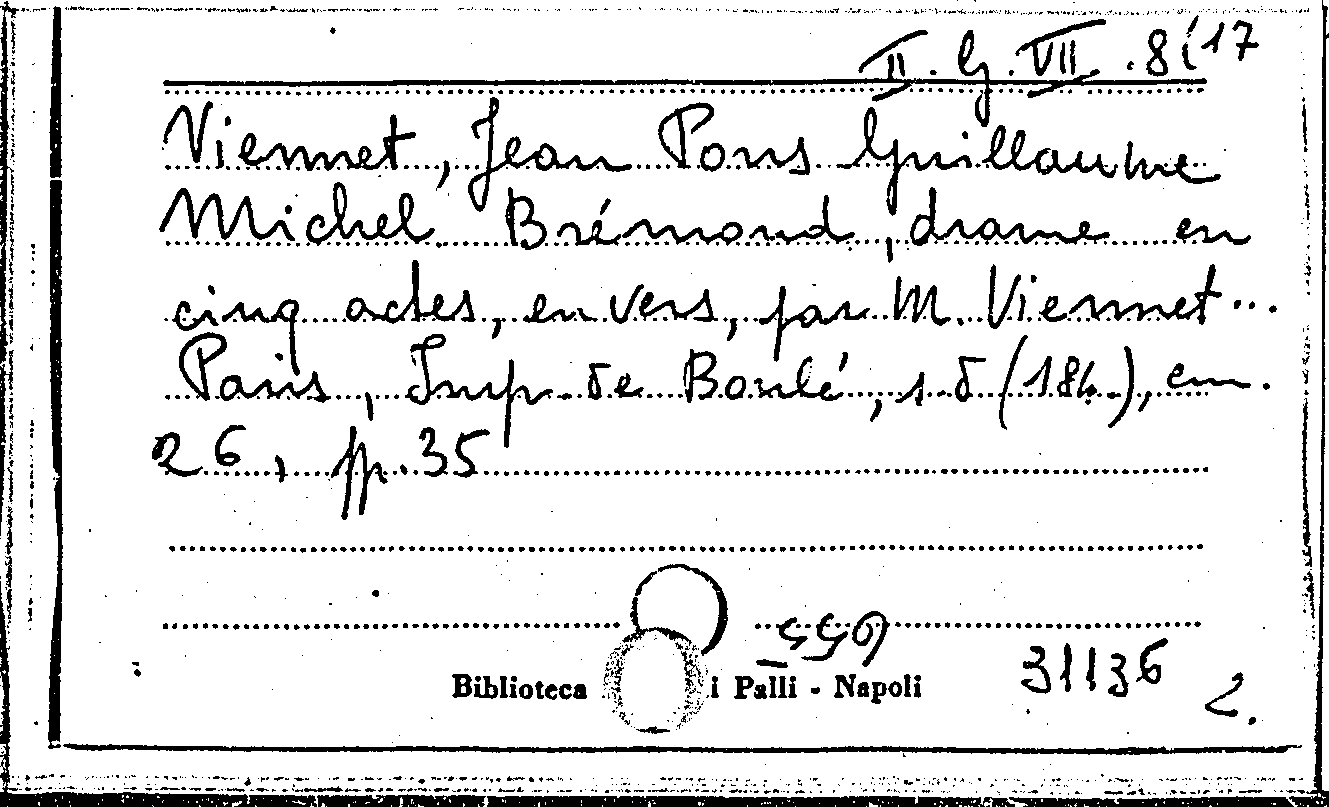 II. G. VII. 8(17
Viennet, Jean Pons Guillaume
Michel Brémond, drame en
cinq actes, en vers, par M. Viennet...
Paris, Imp. de Boulé, s.d (184.), cm.
26, pp. 35
Biblioteca i Palli - Napoli
31136